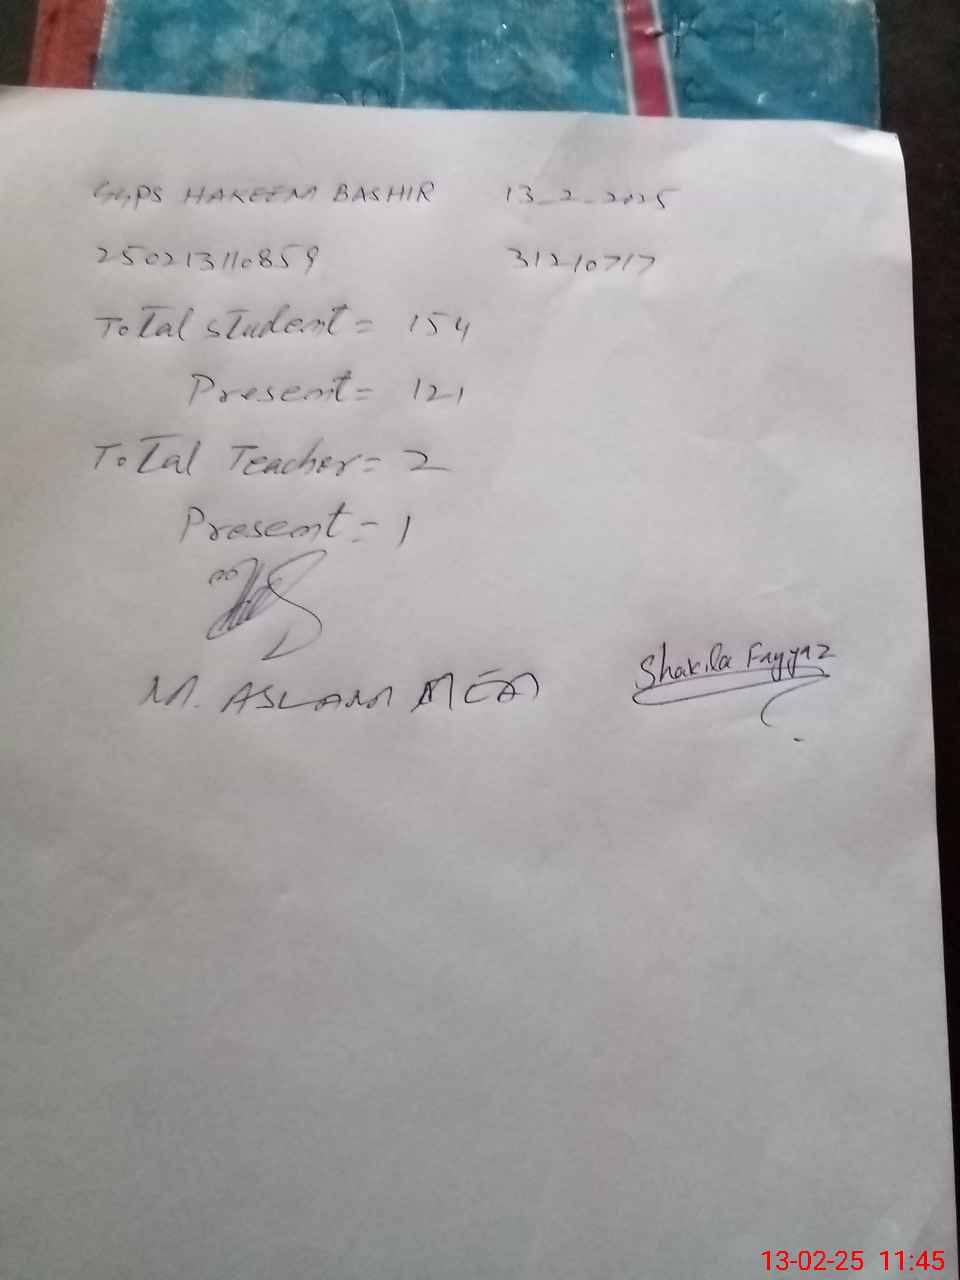 GGPS HAKEEM BASHIR 13_2_2025
250213110859 31210717
Total student = 154
Present = 121
Total Teacher = 2
Present = 1
M. ASLAM MEA Shakila Fayyaz
13-02-25 11:45